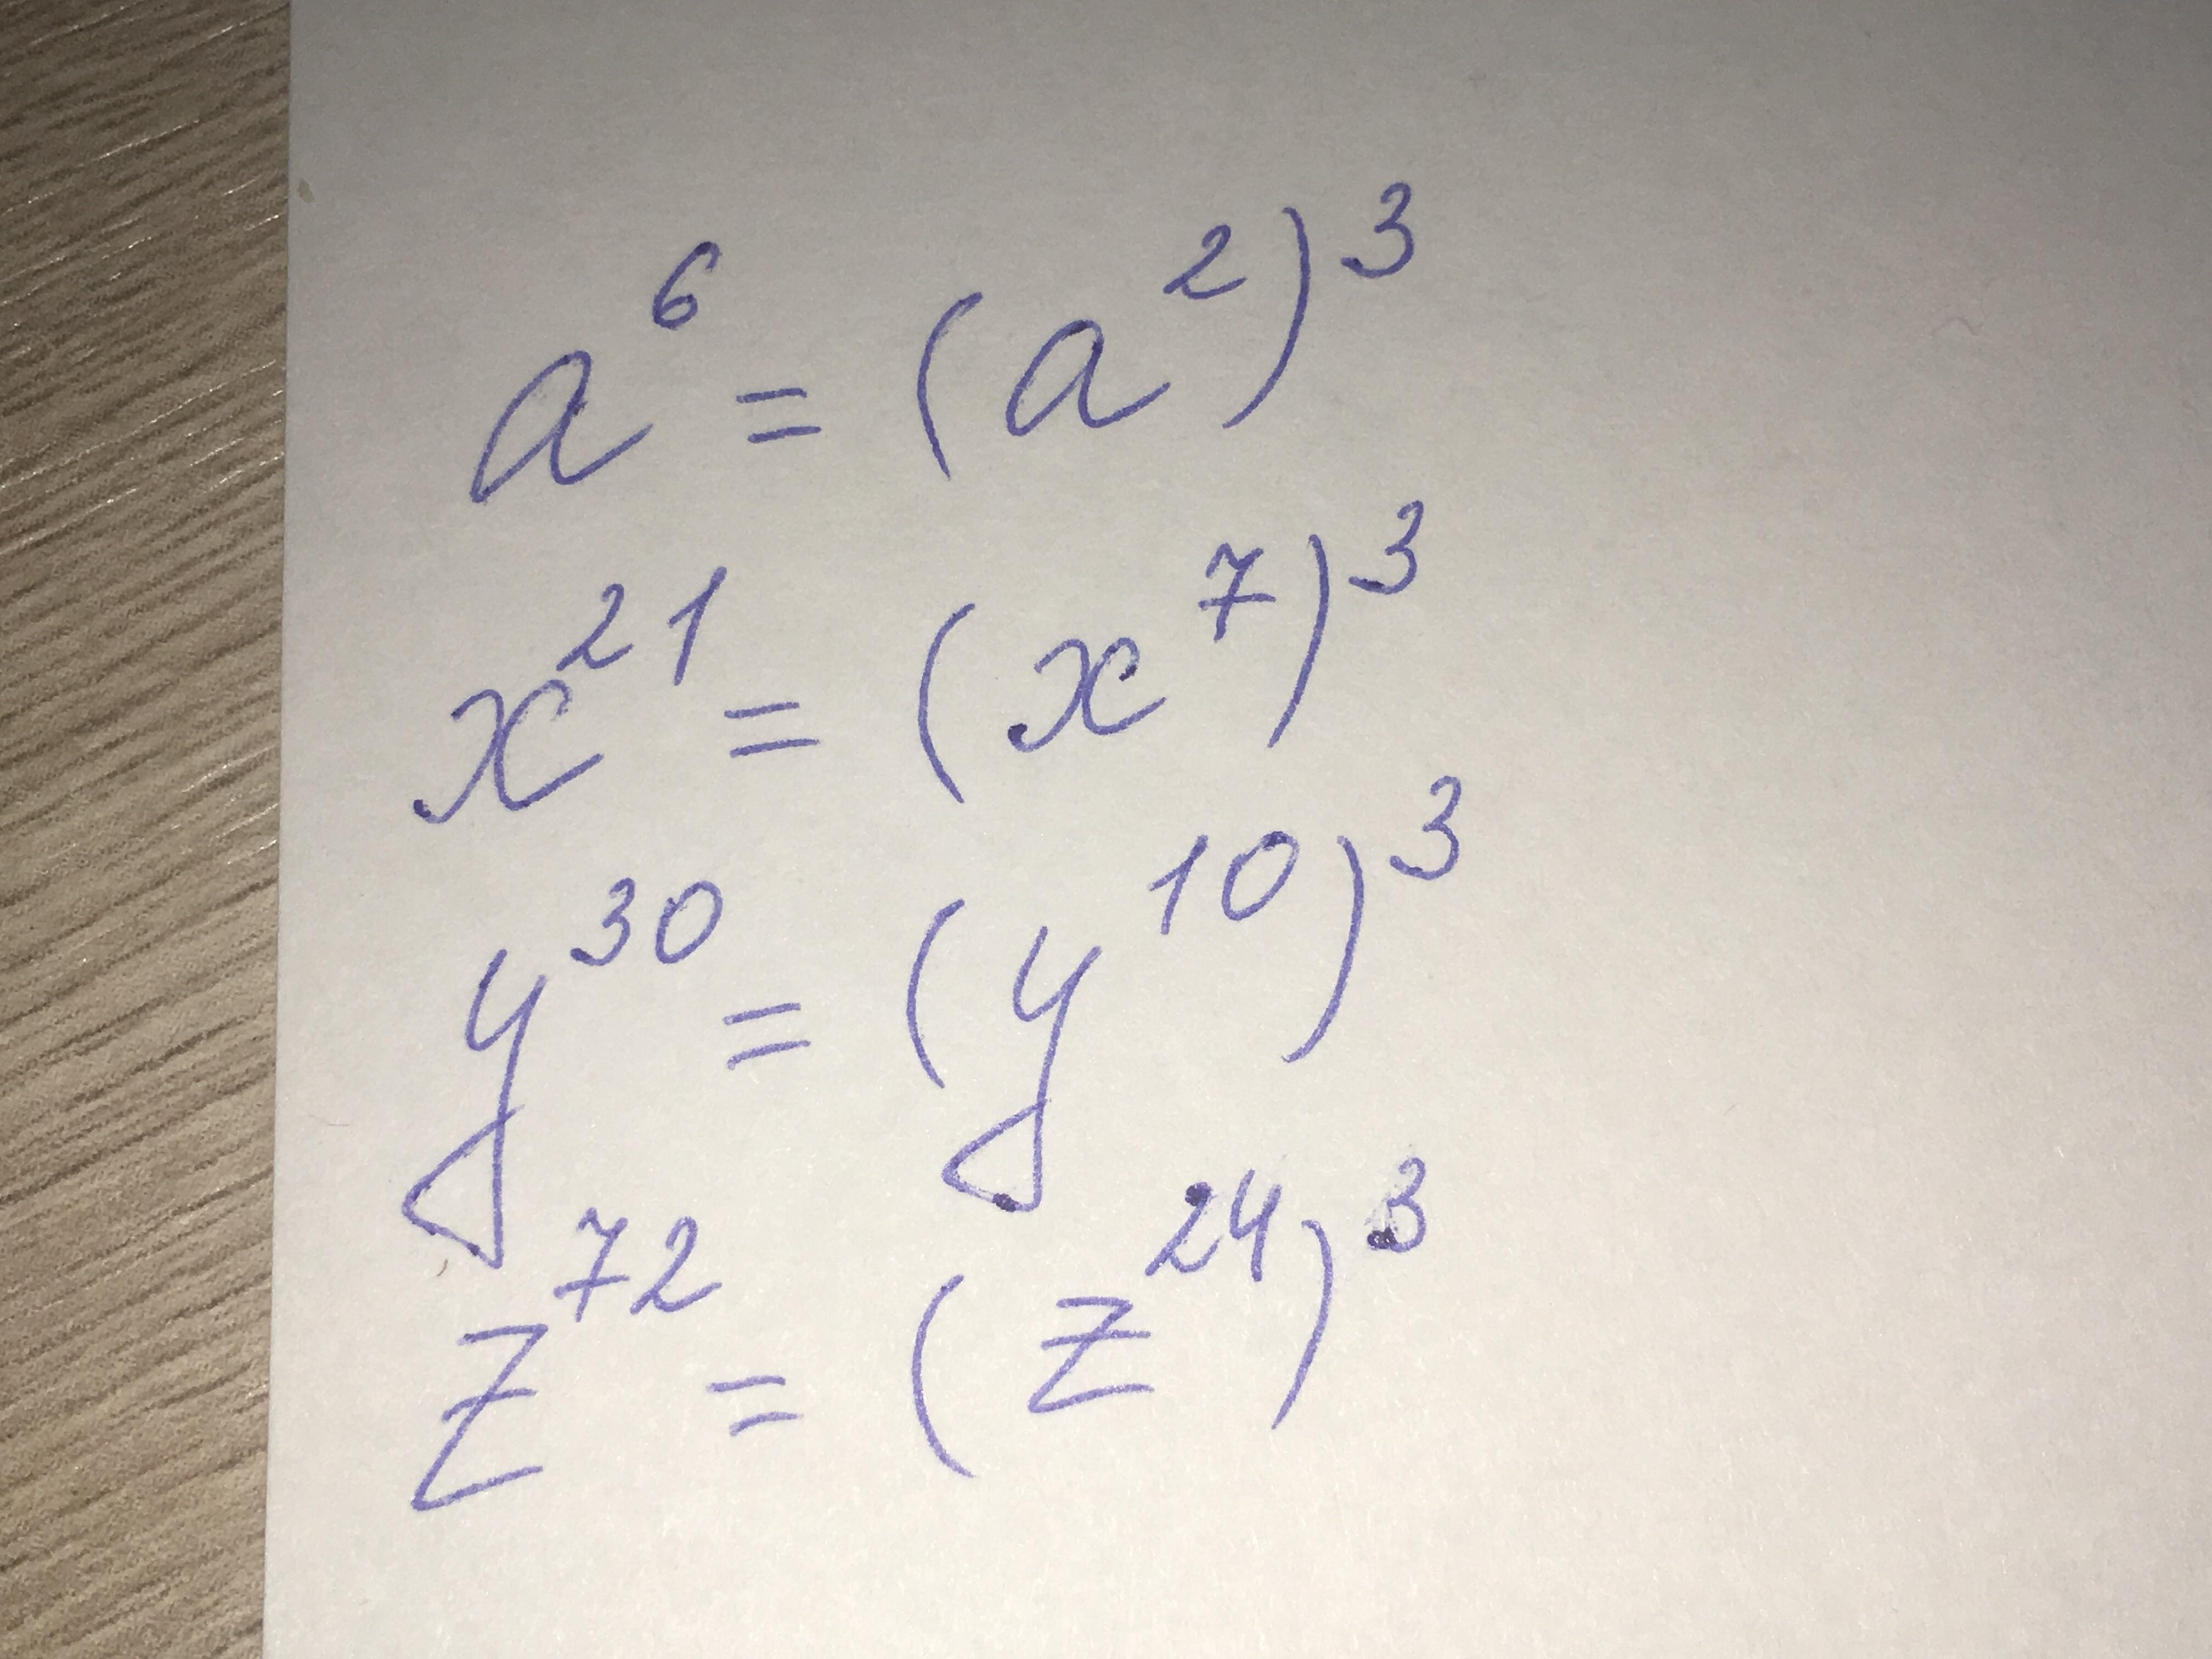 a⁶ = (a²)³
x²¹ = (x⁷)³
y³⁰ = (y¹⁰)³
z⁷² = (z²⁴)³